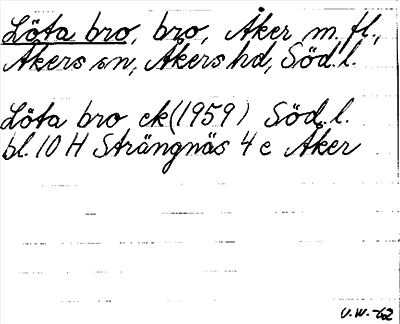 Löta bro, bro, Åker m. fl.,
Åkers sn, Åkers hd, Söd. l.
Löta bro ek (1959) Söd. l.
bl. 10 H Strängnäs 4 c Åker
U.W.-62